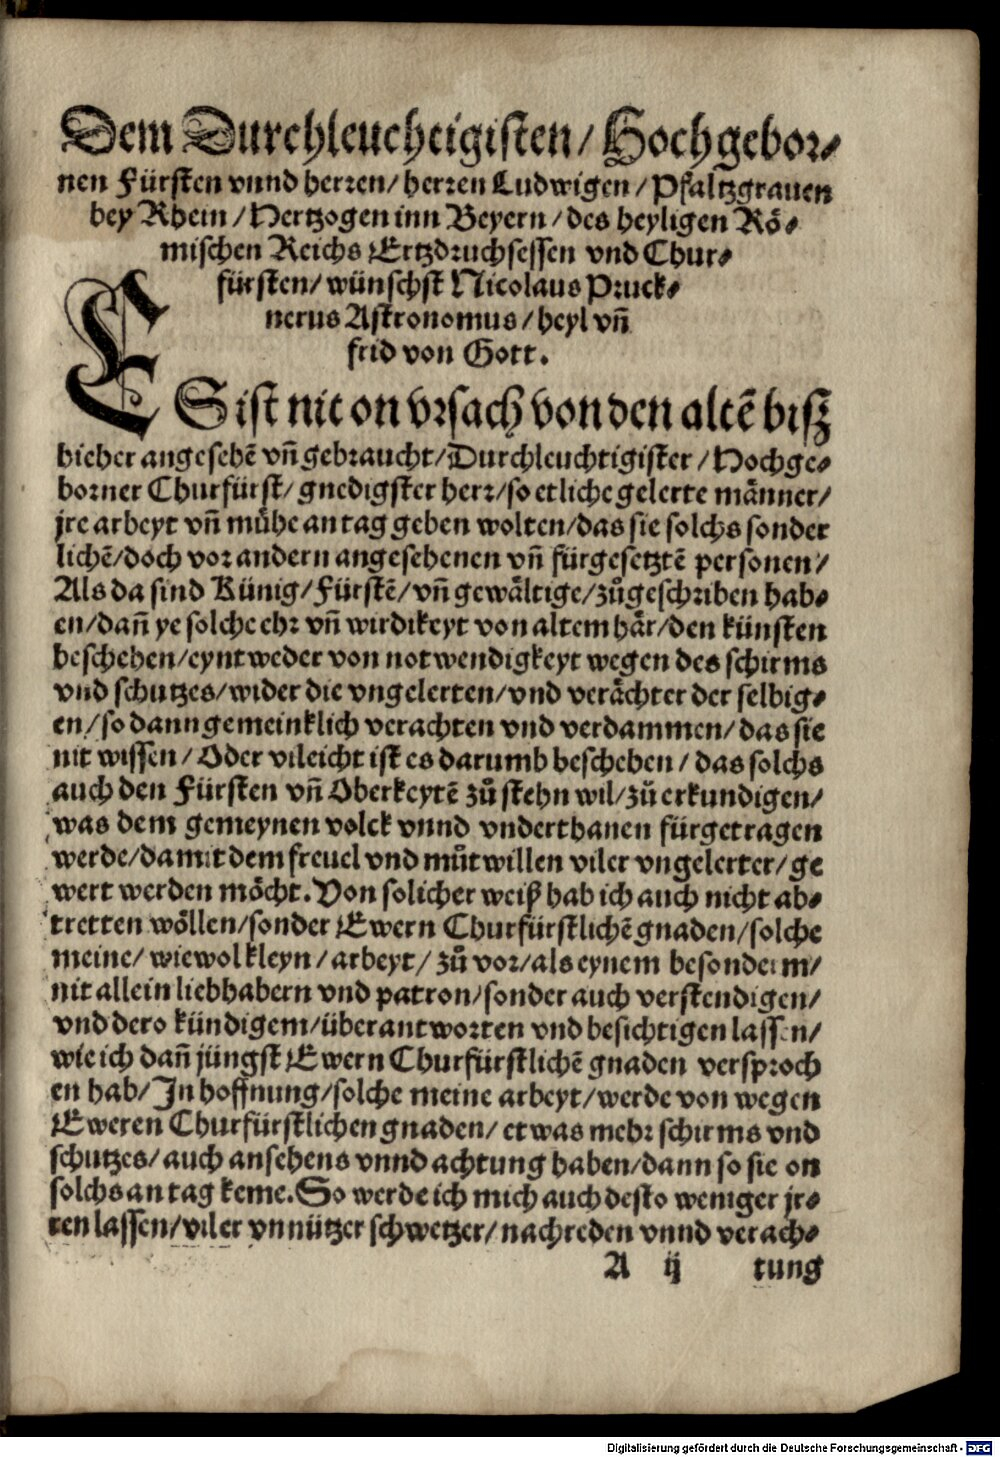 Dem Durchleuchtigisten / Hochgebor⸗
nen Fürsten vnnd herren / herren Ludwigen / Pfaltzgrauen
bey Rhein / Hertzogen inn Beyern / des heyligen Rö⸗
mischen Reichs Ertzdruchsessen vnd Chur⸗
fürsten / wünschst Nicolaus Pruck⸗
nerus Astronomus / heyl vn̄
frid von Gott.
ES ist nit on vrsach von den altē bisz
hieher angesehē vn̄ gebraucht / Durchleuchtigister / Hochge⸗
borner Churfürst / gnedigster herr / so etliche gelerte männer /
jre arbeyt vn̄ mühe an tag geben wolten / das sie solchs sonder
lichē / doch vor andern angesehenen vn̄ fürgesetztē personen /
Als da sind Künig / Fürstē / vn̄ gewältige / zůgeschriben hab⸗
en / dan̄ ye solche ehr vn̄ wirdikeyt von altem här / den künsten
beschehen / eyntweder von notwendigkeyt wegen des schirms
vnd schutzes / wider die vngelerten / vnd verächter der selbig⸗
en / so dann gemeinklich verachten vnd verdammen / das sie
nit wissen / Oder vileicht ist es darumb beschehen / das solchs
auch den Fürsten vn̄ Oberkeytē zů stehn wil / zů erkundigen /
was dem gemeynen volck vnnd vnderthanen fürgetragen
werde / damit dem freuel vnd můtwillen viler vngelerter / ge
wert werden möcht. Von solicher weiß hab ich auch nicht ab⸗
tretten wöllen / sonder Ewern Churfürstlichē gnaden / solche
meine / wiewol kleyn / arbeyt / zů vor / als eynem besonderm /
nit allein liebhabern vnd patron / sonder auch verstendigen /
vnd dero kündigem / überantworten vnd besichtigen lassen /
wie ich dan̄ jüngst Ewern Churfürstlichē gnaden versproch
en hab / In hoffnung / solche meine arbeyt / werde von wegen
Eweren Churfürstlichen gnaden / etwas mehr schirms vnd
schutzes / auch ansehens vnnd achtung haben / dann so sie on
solchs an tag keme. So werde ich mich auch desto weniger jr⸗
ren lassen / viler vnnützer schwetzer / nachreden vnnd verach⸗
A ij tung
Digitalisierung gefördert durch die Deutsche Forschungsgemeinschaft - DFG